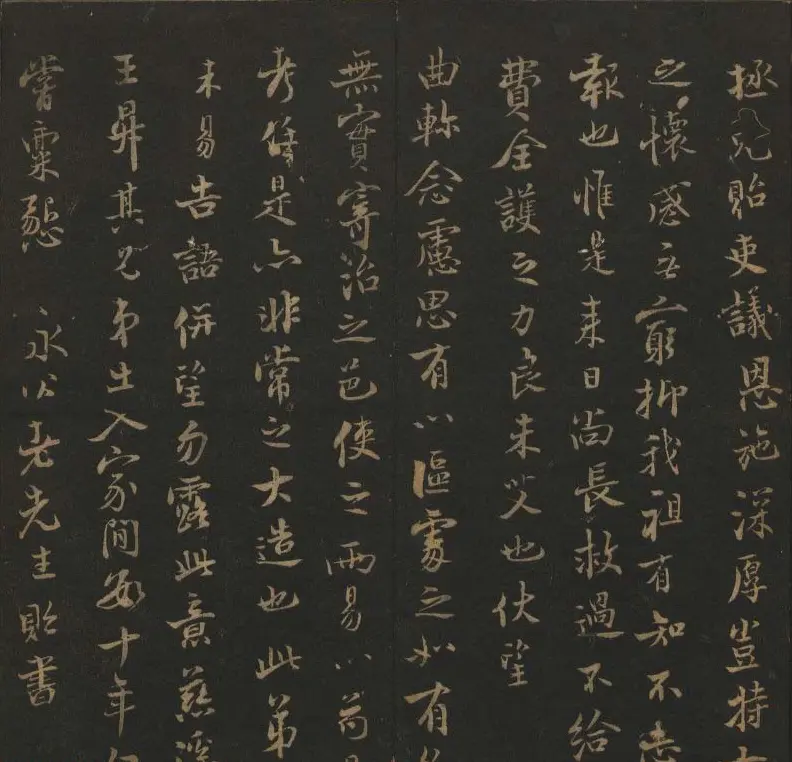 拯兒貽吏議恩施深厚豈持
之懷感無窮抑我祖有知不忘
報也惟是来日尚長救過不給
費全護之力良未艾也伏望
曲軫念慮思有以區處之如有
無實寄治之邑使之兩易以苟
考任是亦非常之大造也此弟
未易告語併望勿露此意慈溪
王昇其兄弟出入家間數十年
嘗稟懇 永公老先生貽書